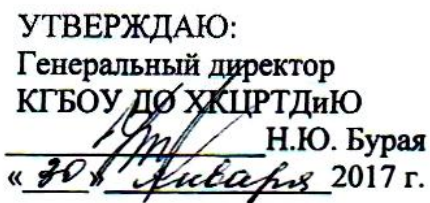 УТВЕРЖДАЮ:
Генеральный директор
КГБОУ ДО ХКЦРТДиЮ
Н.Ю. Бурая
«30» января 2017 г.